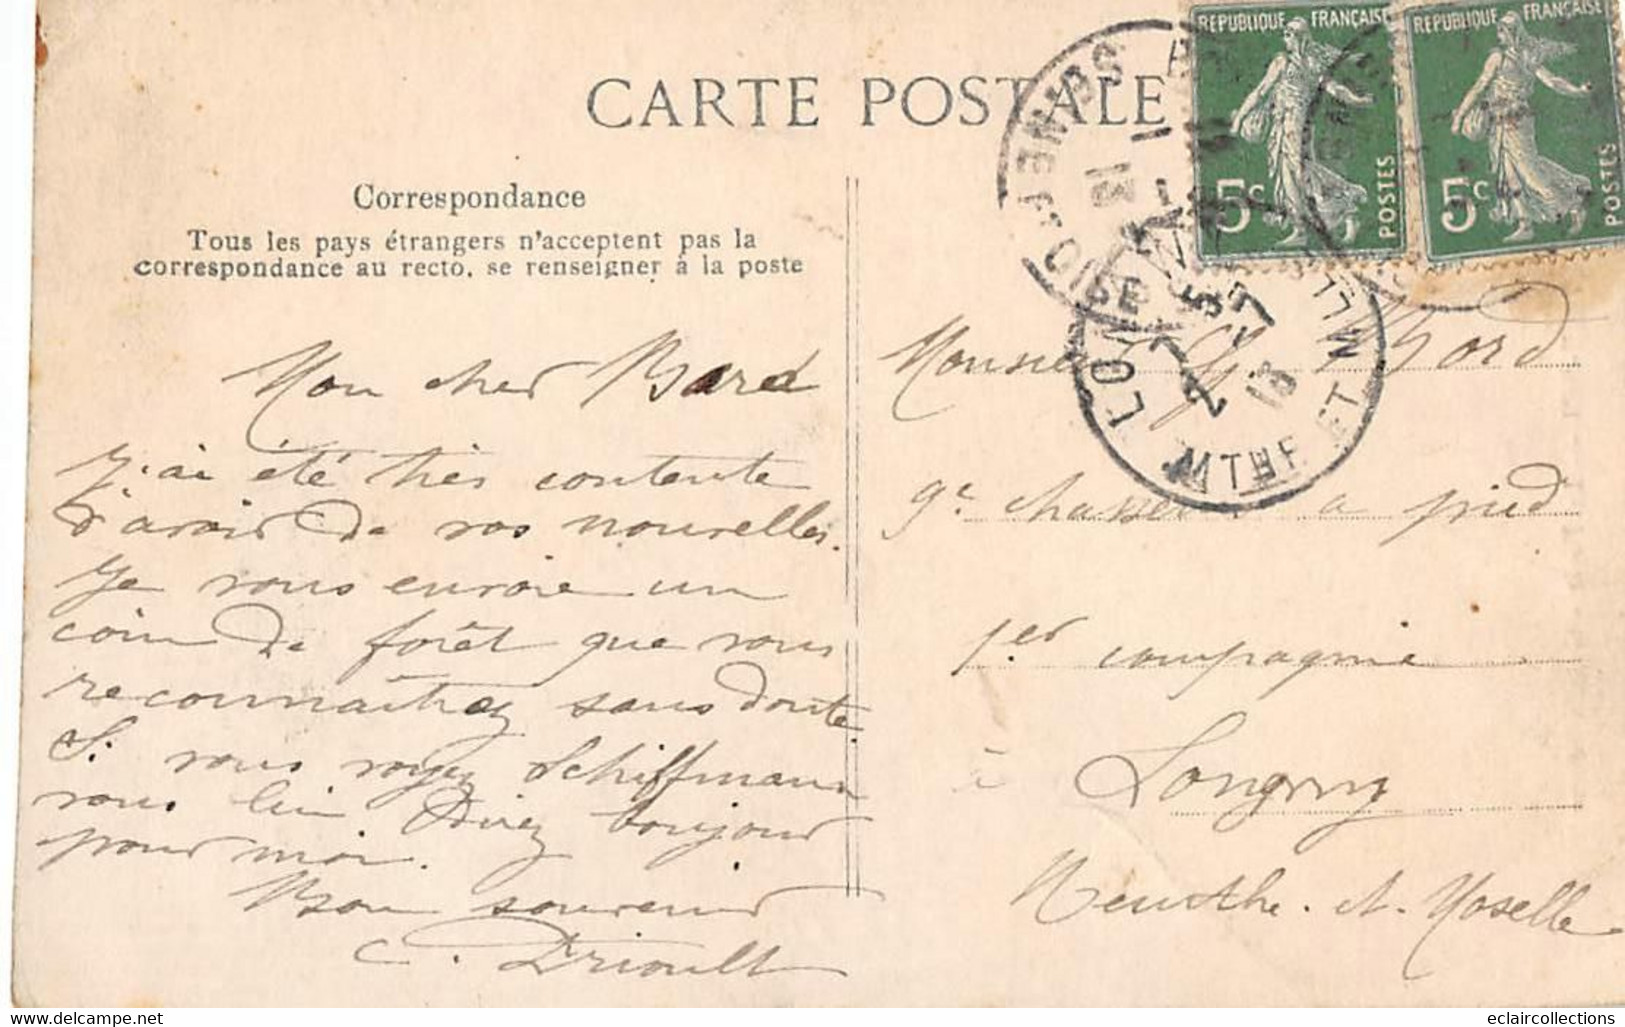 CARTE POSTALE
REPUBLIQUE FRANÇAISE
5c
POSTES
REPUBLIQUE FRANÇAISE
5c
POSTES
OISE
13
LON
MTHE ET M
13
Correspondance
Tous les pays étrangers n'acceptent pas la
correspondance au recto, se renseigner à la poste
Mon cher Bord
J'ai été très contente
d'avoir de vos nouvelles.
Je vous envoie un
coin de forêt que vous
reconnaîtrez sans doute.
Si vous voyez Schiffmann
vous lui direz bonjour
pour moi.
Bon souvenir
C. Drioult
Monsieur G. Bord
9e chasseur a pied
1.er compagnie
à Longwy
Meurthe-et-Moselle
www.delcampe.net
eclaircollections